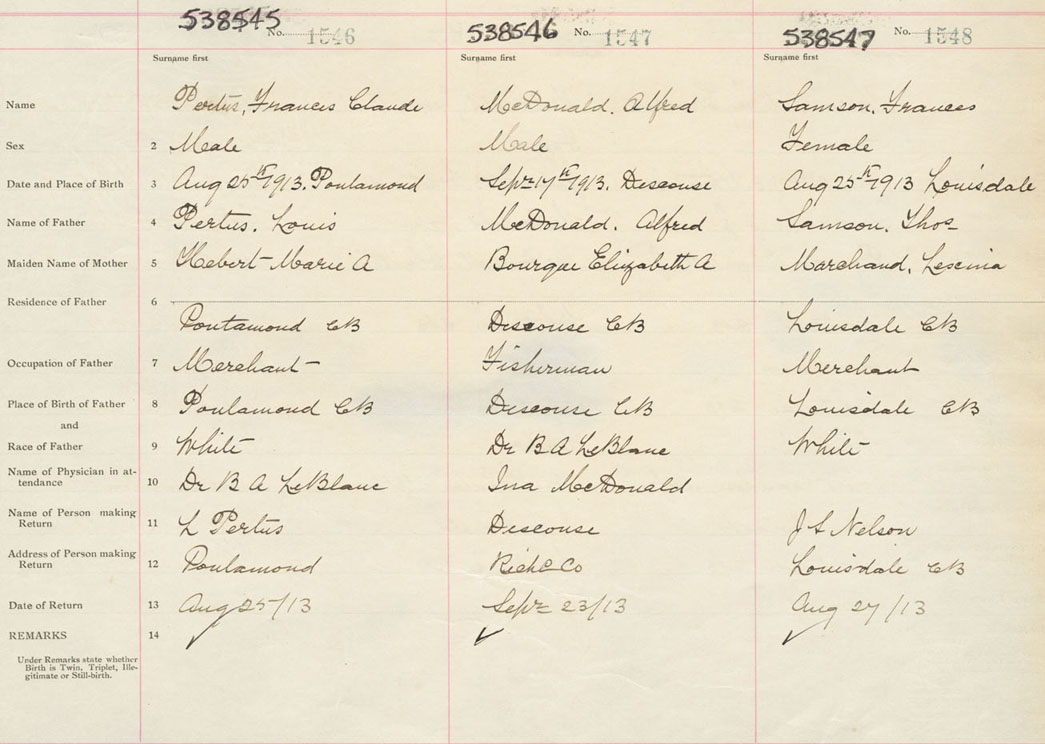 538545 No. 1546 538546 No. 1547 538547 No. 1548
Surname first Surname first Surname first
Name Pertus, Frances Claude McDonald. Alfred Samson, Frances
Sex 2 Male Male Female
Date and Place of Birth 3 Aug 25th 1913. Poulamond Sept 17th 1913. Descouse Aug 25th 1913 Louisdale
Name of Father 4 Pertus. Louis McDonald. Alfred Samson. Thos
Maiden Name of Mother 5 Hebert Marie A Bourque Elizabeth A Marchand,
Residence of Father 6
Poutamond CB Descouse CB Louisdale CB
Occupation of Father 7 Merchant Fisherman Merchant
Place of Birth of Father 8 Poulamond CB Descouse CB Louisdale CB
and
Race of Father 9 White Dr B A LeBlanc White
Name of Physician in at-
tendance 10 Dr B A LeBlanc Ina McDonald
Name of Person making
Return 11 L Pertus Descouse Nelson
Address of Person making
Return 12 Poulamond Rich Co Louisdale CB
Date of Return 13 Aug 25/13 Sept 23/13 Aug 27/13
REMARKS 14 ✓ ✓ ✓
Under Remarks state whether
Birth is Twin, Triplet, Ille-
gitimate or Still-birth.